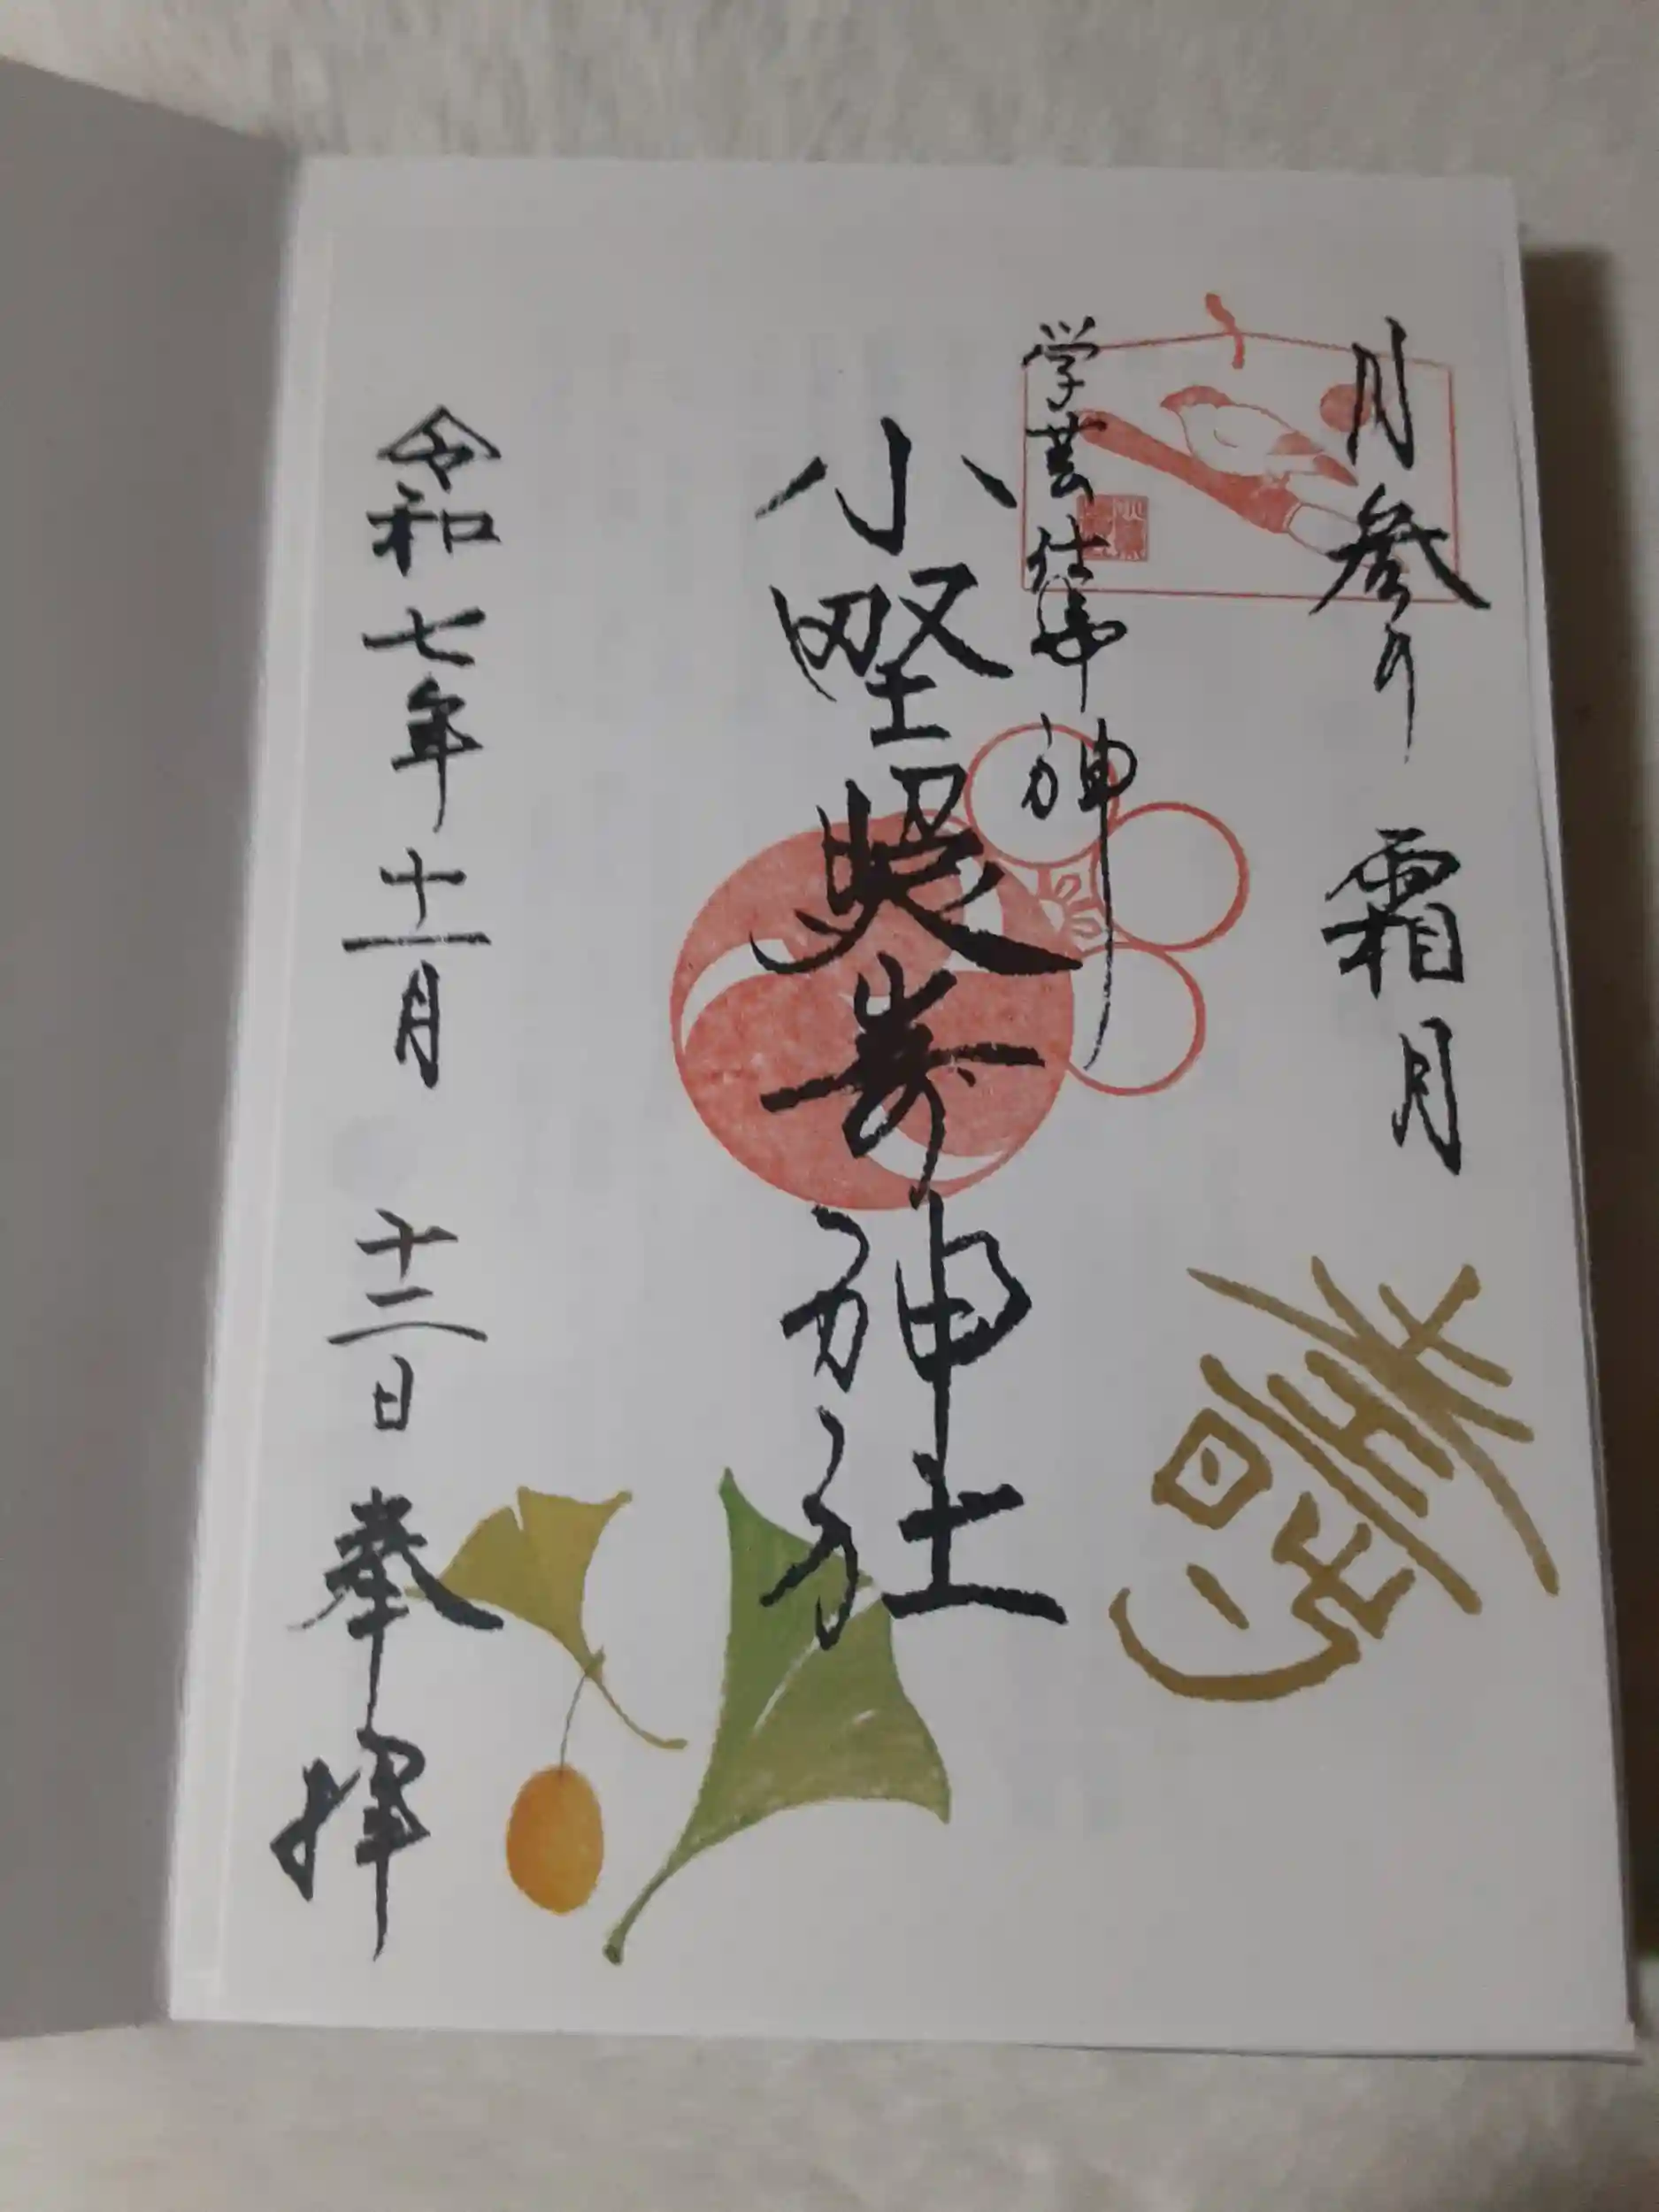 月参り 霜月
寿
学芸仕事神
小野照崎神社
令和七年十一月十二日 奉拝